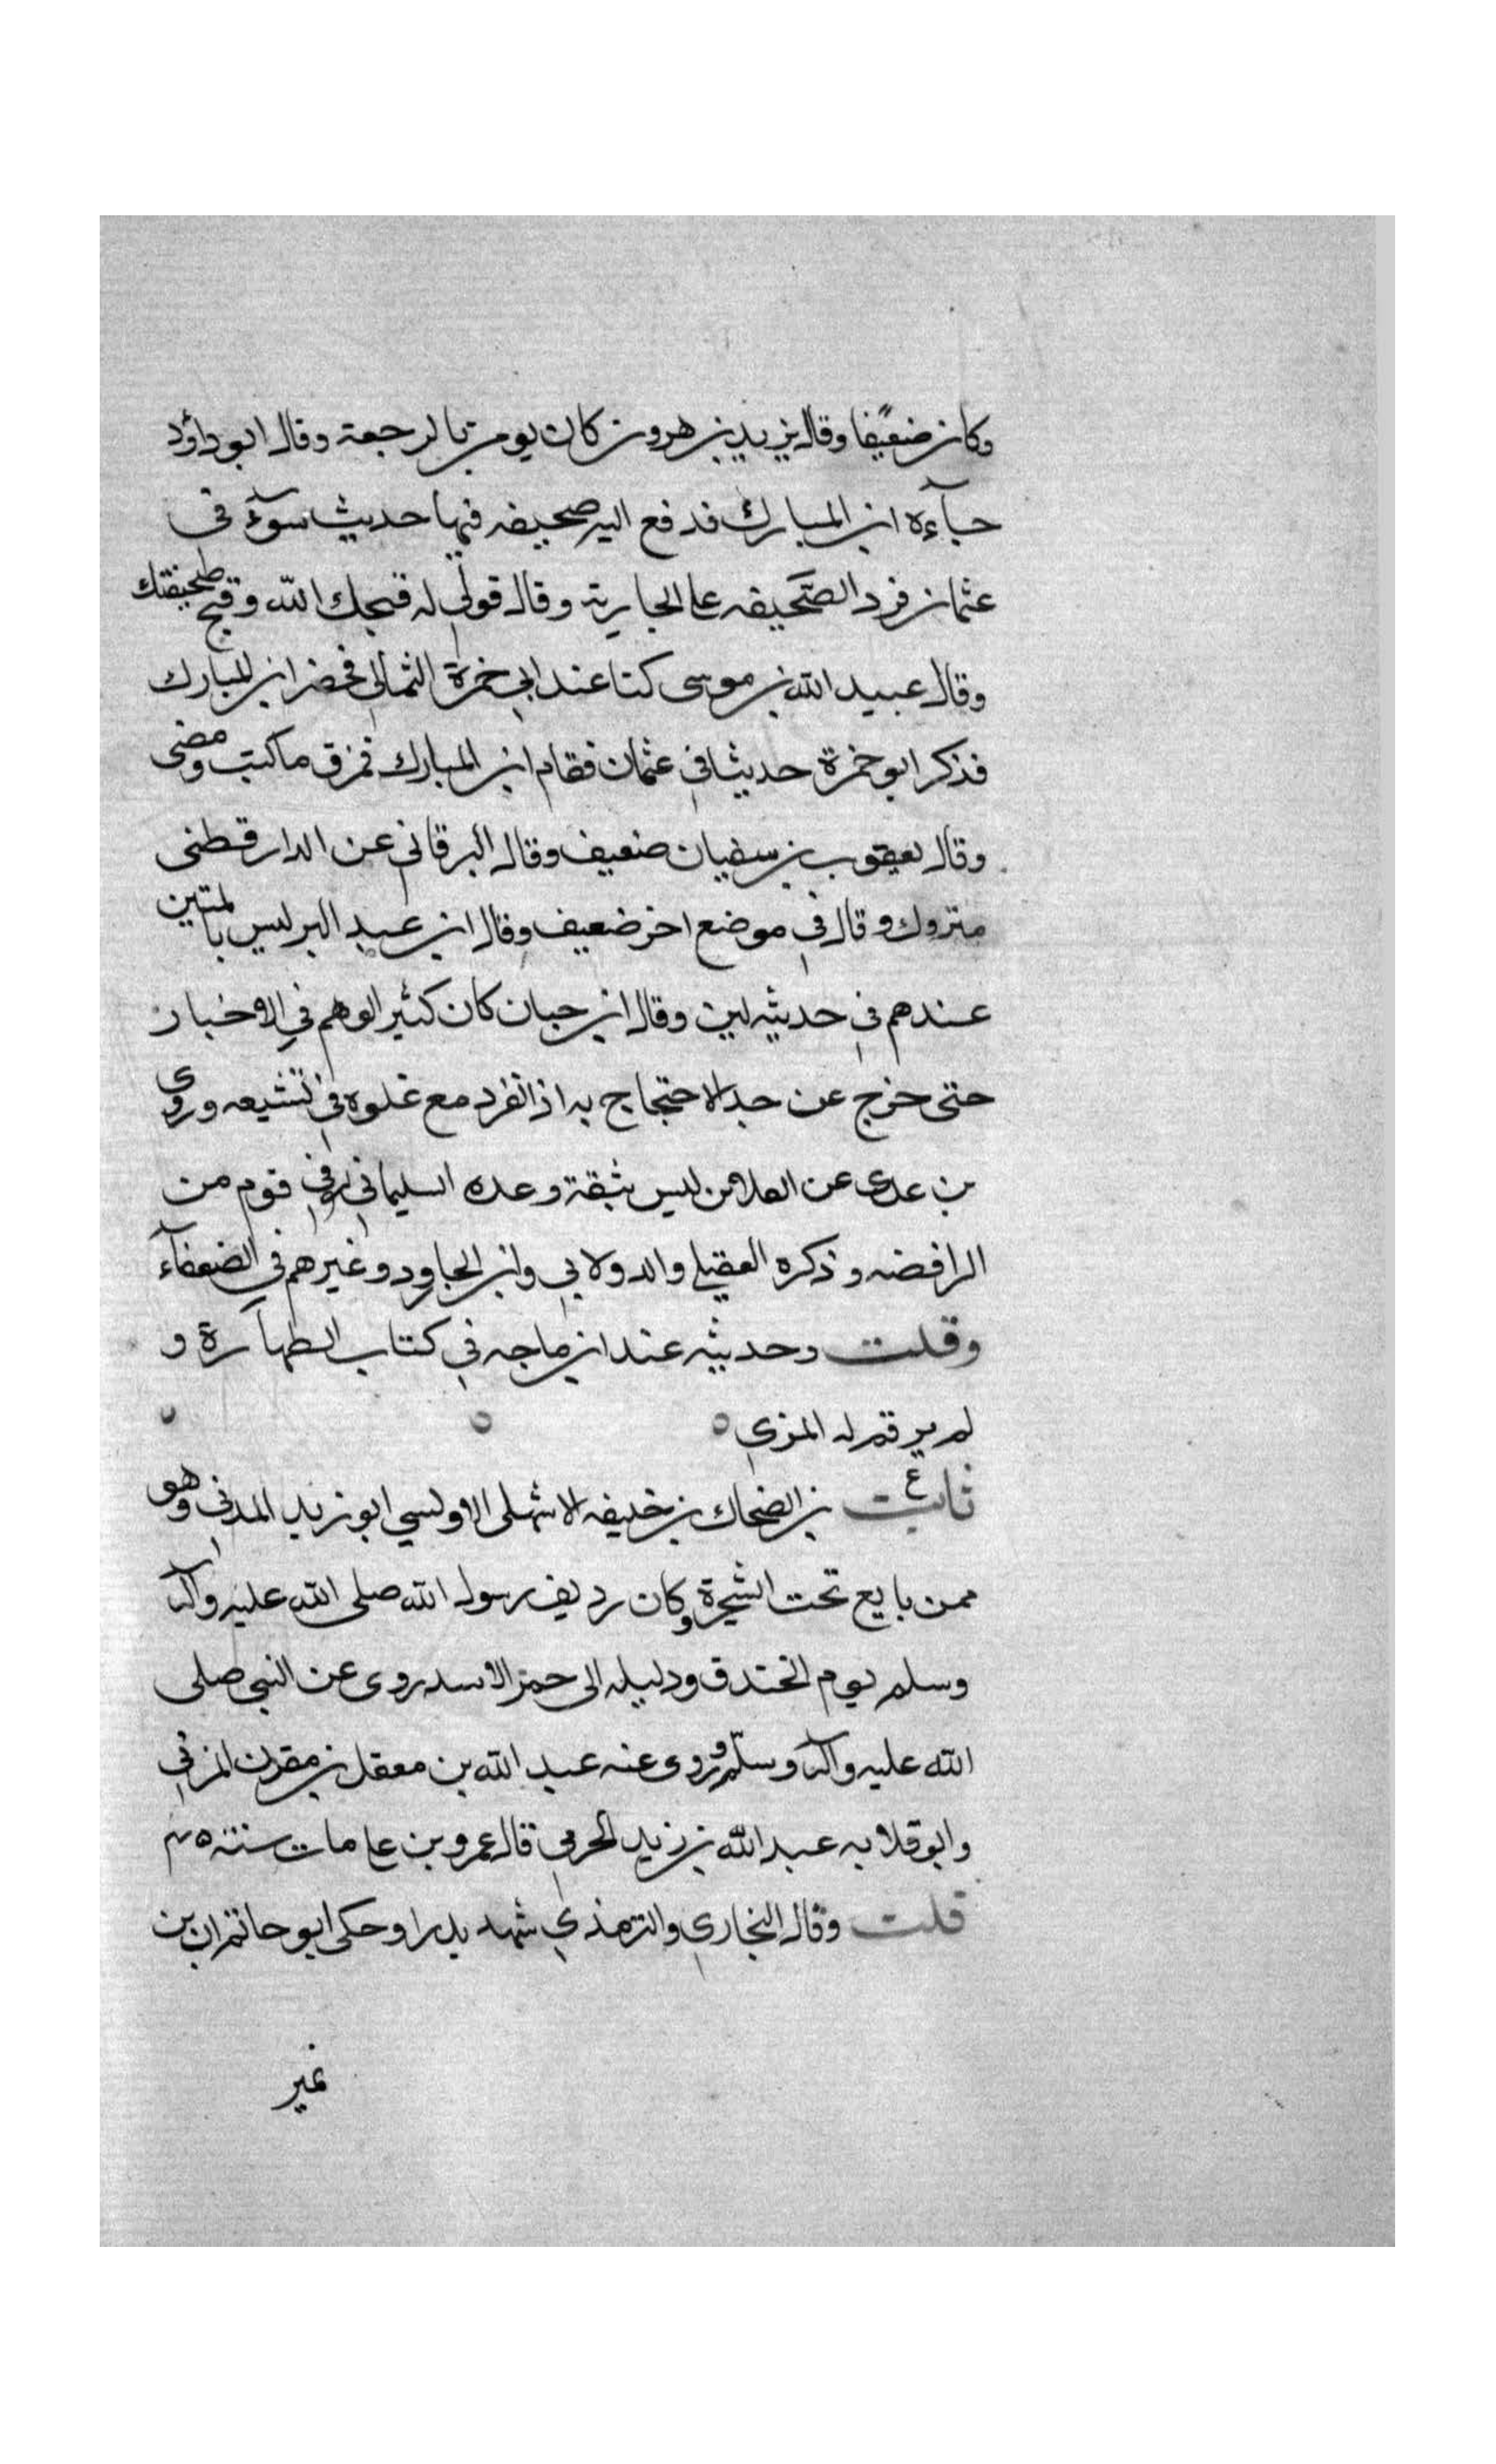 وكان ضعيفا وقال يزيد بن هرون كان يومن بالرجعة وقال ابو داؤد
جآءه ابن المبارك فدفع اليه صحيفه فيها حديث سوٓء في
عثمان فرد الصحيفه على الجارية وقال قولي له قبحك الله وقبح صحيفتك
وقال عبيد الله بن موسى كنا عند ابي حمزة الثمالي فحضر ابن المبارك
فذكر ابو حمزة حديثا في عثمان فقام ابن المبارك فمزق ما كتب ومضى
وقال يعقوب بن سفيان ضعيف وقال البرقاني عن الدارقطنى
متروك وقال في موضع اخر ضعيف وقال ابن عبد البر ليس بالمتين
عندهم في حديثه لين وقال ابن حبان كان كثير الوهم في الاخبار
حتى خرج عن حد الاحتجاج به اذا انفرد مع غلوه في تشيعه وروى
بن عدى عن الفلاس ليس بثقة وعده السليمانى في قوم من
الرافضه وذكره العقيلي والدولابي وابن الجاورد وغيرهم في الضعفآء
وقلت وحديثه عند ابن ماجه في كتاب الطهآرة و
لم يرقم له المزي
ثابت ع بن الضحاك بن خليفه الاشهلى الاوسي ابو زيد المدني وهو
ممن بايع تحت الشجرة وكان رديف رسول الله صلى الله عليه وآله
وسلم يوم الخندق ودليله الى حمر الاسد روى عن النبي صلى
الله عليه وآله وسلّم وروى عنه عبد الله بن معقل بن مقرن المزني
وابو قلابه عبد الله بن زيد الجرمي قال عمرو بن على مات سنة ٤٥
قلت وقال البخاري والترمذي شهد بدرا وحكى ابو حاتم ان بن
نمير